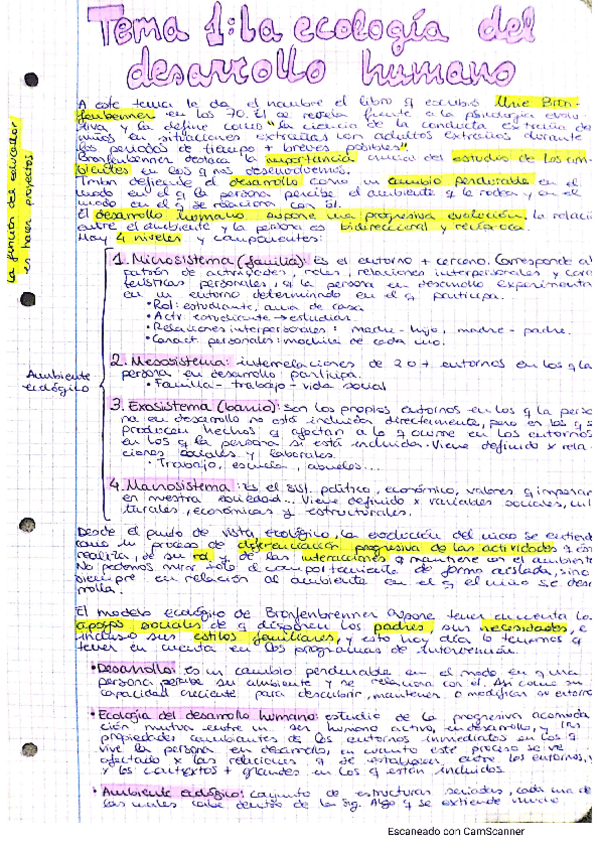 Tema 1: La ecología del
desarrollo humano
A este tema le da el nombre el libro q escribió Urie Bron-
fenbrenner en los 70. Él se revela frente a la psicología evolu-
tiva y la define como "la ciencia de la conducta extraña de
niños en situaciones extrañas con adultos extraños durante
los periodos de tiempo + breves posibles".
Bronfenbenner destaca la importancia crucial del estudio de los am-
bientes en los q nos desenvolvemos.
Tmbn defiende el desarrollo como un cambio perdurable en el
modo en el q la persona percibe el ambiente q le rodea y en el
modo en el q se relaciona con él.
El desarrollo humano supone una progresiva evolución, la relación
entre el ambiente y la persona es bidireccional y recíproca.
Hay 4 niveles y componentes:
La función del educador
es hacer proyectos
Ambiente
ecológico
1. Microsistema (familia): Es el entorno + cercano. Corresponde al
patrón de actividades, roles, relaciones interpersonales y carac
terísticas personales, q la persona en desarrollo experimenta
en un entorno determinado en el q participa.
• Rol: estudiante, ama de casa
• Act: estudiante → estudiar
• Relaciones interpersonales: madre-hijo, madre-padre.
• Caract. personales: mochila de cada uno.
2. Mesosistema: interrelaciones de 2 o + entornos en los q la
persona en desarrollo participa.
• Familia - trabajo - vida social
3. Exosistema (barrio): son los propios entornos en los q la perso
na en desarrollo no está incluida directamente, pero en los q se
producen hechos q afectan a lo q ocurre en los entornos
en los q la persona si está incluida. Viene definido x rela-
ciones sociales y laborales.
• Trabajo, escuela, abuelos...
4. Macrosistema: Es el sist. político, económico, valores q imperan
en nuestra sociedad... Viene definido x variables sociales, cul
turales, económicas y estructurales.
Desde el punto de vista ecológico, la evolución del niño se entiende
como un proceso de diferenciación progresiva de las actividades q éste
realiza, de su rol y de las interacciones q mantiene con el ambiente
No podemos mirar solo el comportamiento de forma aislada, sino
siempre en relación al ambiente en el q el niño se desa
rrolla.
El modelo ecológico de Bronfenbrenner supone tener en cuenta los
apoyos sociales de q disponen los padres, sus necesidades, e
incluso sus estilos familiares, y esto hoy día lo tenemos q
tener en cuenta en los programas de intervención.
• Desarrollo: es un cambio perdurable en el modo en q una
persona percibe su ambiente y se relaciona con él. Así como su
capacidad creciente para descubrir, mantener o modificar su entorno
• Ecología del desarrollo humano: estudio de la progresiva acomoda
ción mutua entre un ser humano activo, en desarrollo, y las
propiedades cambiantes de los entornos inmediatos en los q
vive la persona en desarrollo, en cuanto este proceso se ve
afectado x las relaciones q se establecen entre los entornos, y
y los contextos + grandes en los q están incluidos.
• Ambiente ecológico: conjunto de estructuras seriadas, cada una de
las cuales cabe dentro de la sig. Algo q se extiende mucho
Escaneado con CamScanner